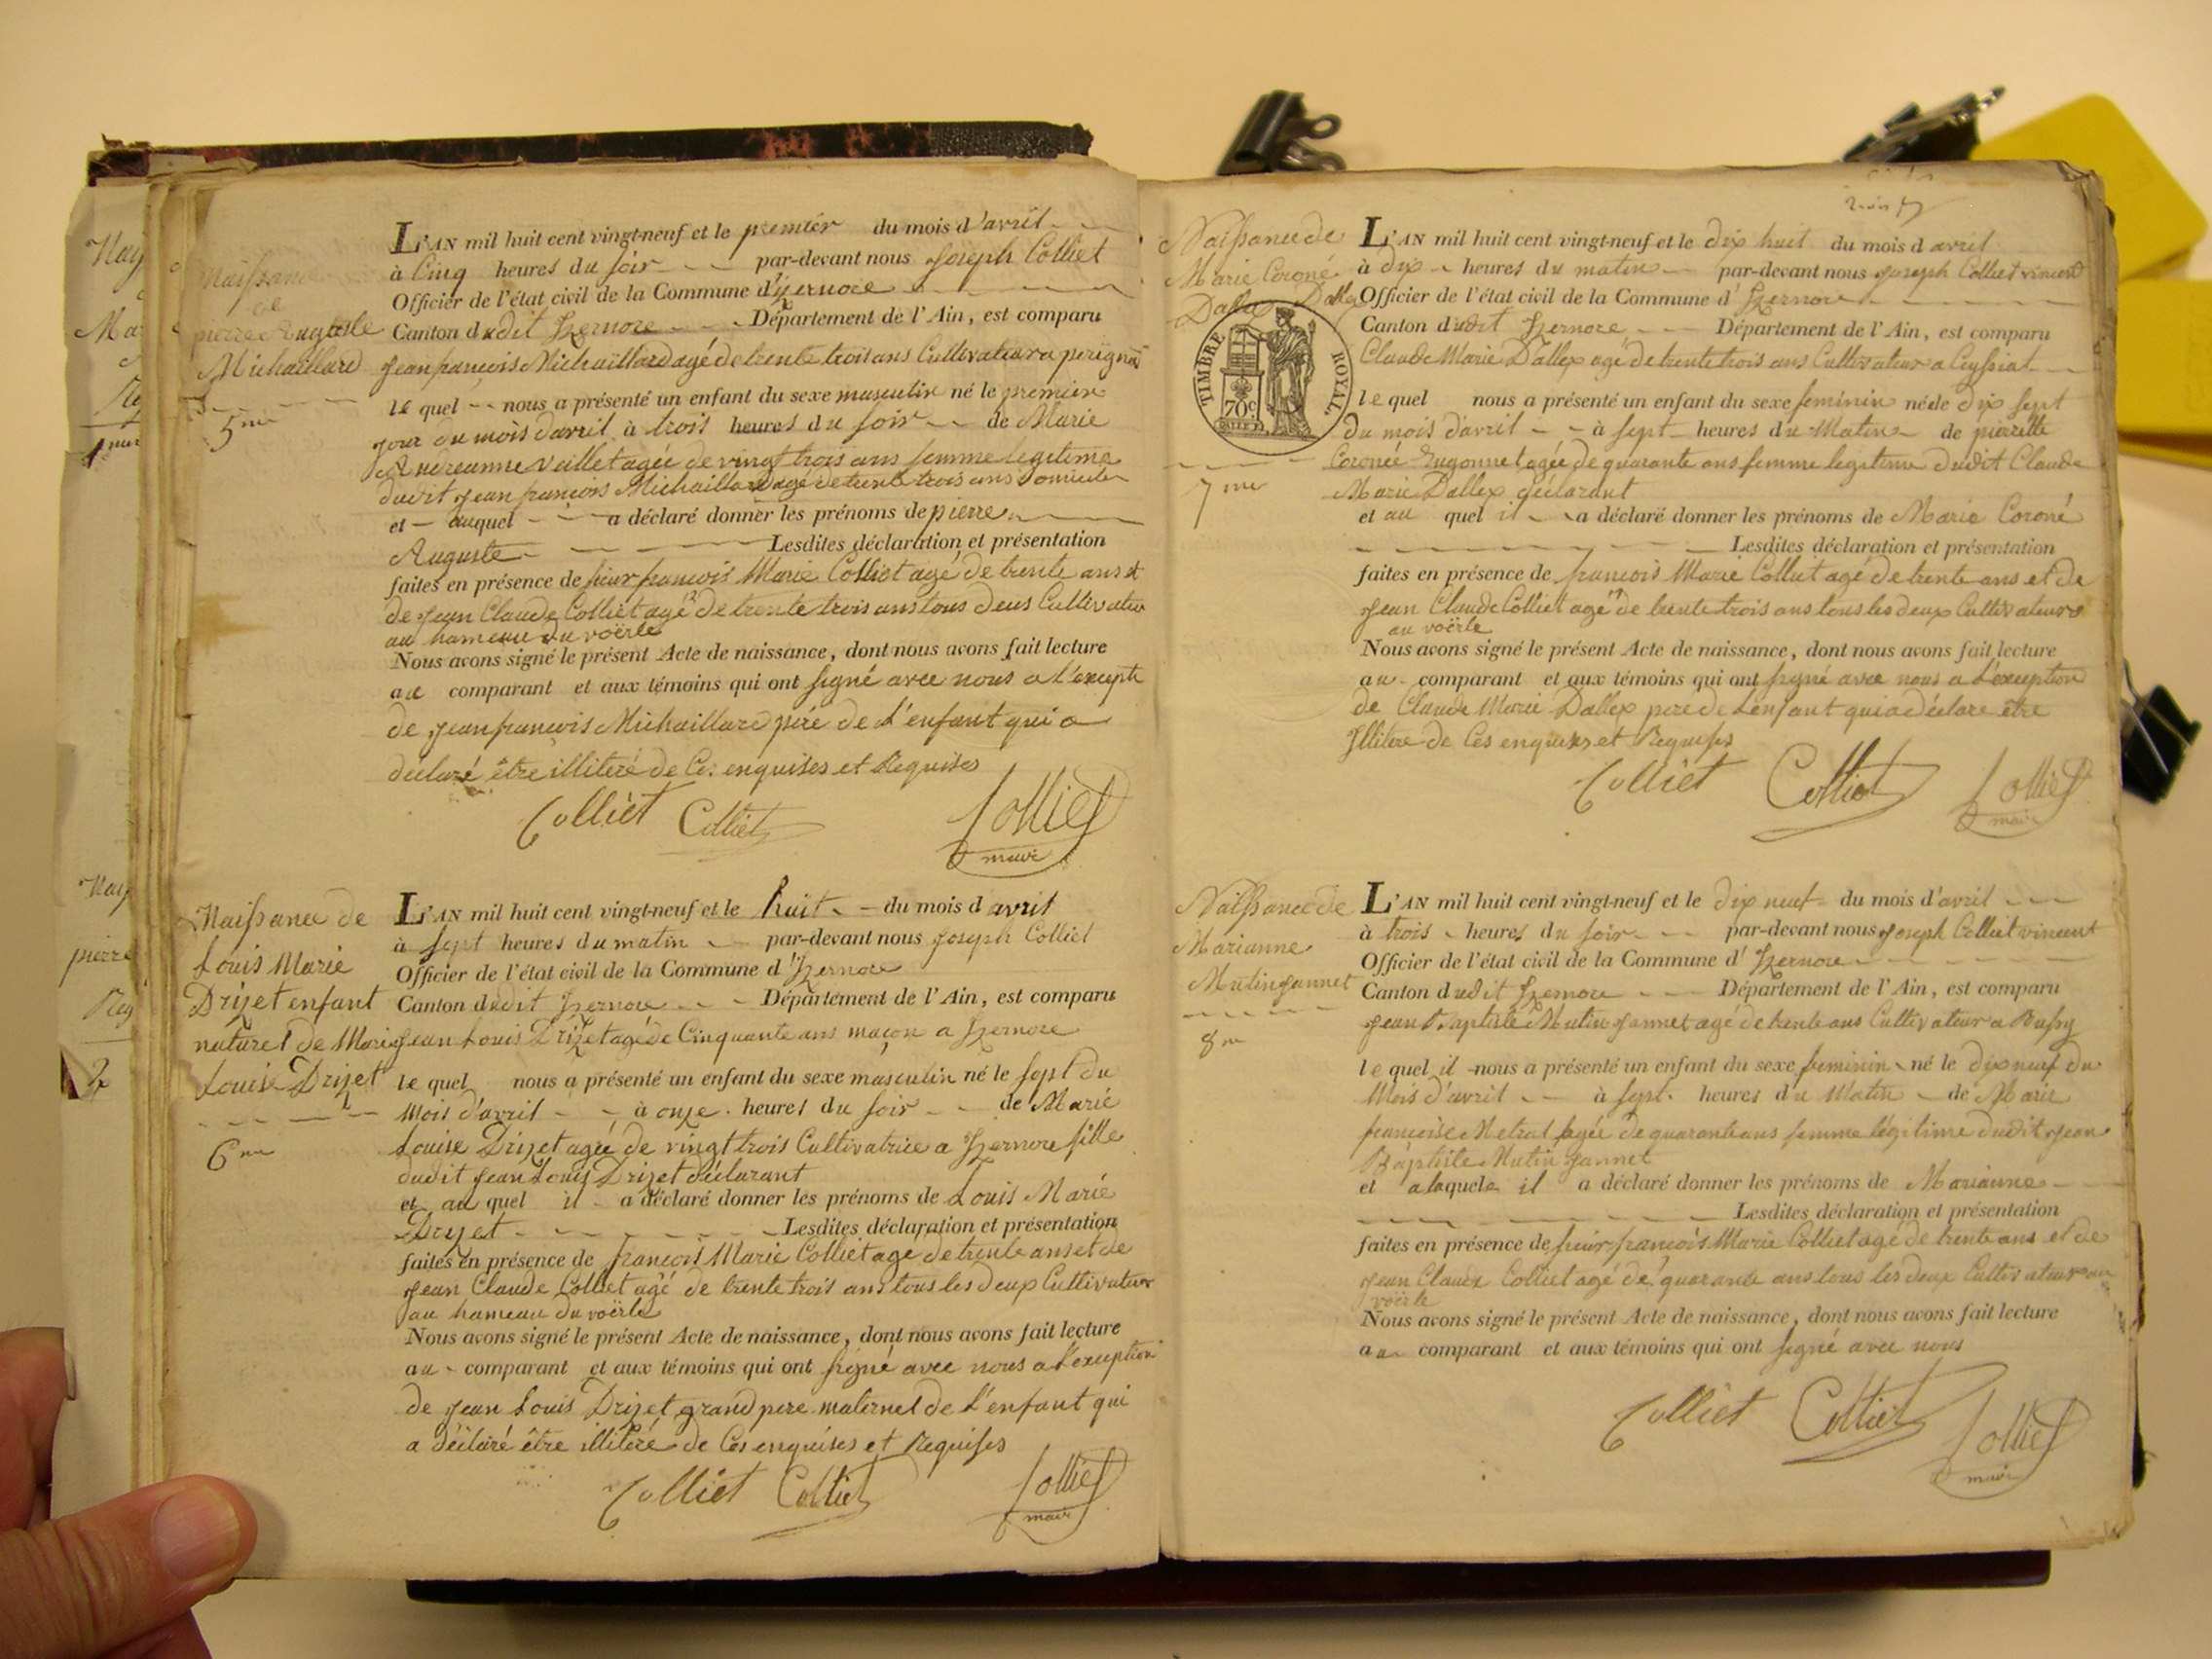 Naissance
de
pierre Auguste
Michaillard
5me
L'AN mil huit cent vingt-neuf et le premier du mois d'avril
à Cinq heures du soir par-devant nous Joseph Colliet
Officier de l'état civil de la Commune d'Izernore
Canton dudit Izernore Département de l'Ain, est comparu
Jean françois Michaillard agé de trente trois ans Cultivateur a perignat
le quel nous a présenté un enfant du sexe masculin né le premier
jour du mois d'avril à trois heures du soir de Marie
Andreanne Veillet agée de vingt trois ans femme legitime
dudit Jean francois Michaillard agé de trente trois ans
et auquel a déclaré donner les prénoms de pierre
Auguste Lesdites déclaration et présentation
faites en présence de sieur francois Marie Colliet agé de trente ans et
de Jean Claude Colliet agé de trente trois ans tous deus Cultivateur
au hameau du voërle
Nous avons signé le présent Acte de naissance, dont nous avons fait lecture
au comparant et aux témoins qui ont signé avec nous a l'excepti
de Jean francois Michaillard père de l'enfant qui a
declaré être illiteré de Ce enquises et Requises
Colliet Colliet Colliet
maire
Naissance de
Louis Marie
Drizet enfant
naturel de Marie
Louise Drizet
6me
L'AN mil huit cent vingt-neuf et le huit du mois d avril
à sept heures du matin par-devant nous Joseph Colliet
Officier de l'état civil de la Commune d'Izernore
Canton dudit Izernore Département de l'Ain, est comparu
Jean Louis Drizet agé de Cinquante ans maçon a Izernore
le quel nous a présenté un enfant du sexe masculin né le sept du
Mois d'avril à onze heures du soir de Marie
Louise Drizet agée de vingt trois Cultivatrice a Izernore fille
dudit Jean Louis Drizet déclarant
et au quel il a déclaré donner les prénoms de Louis Marie
Drizet Lesdites déclaration et présentation
faites en présence de francois Marie Colliet age de trente ans et de
Jean Claude Colliet agé de trente trois ans tous les deux Cultivateur
au hameau du voërle
Nous avons signé le présent Acte de naissance, dont nous avons fait lecture
au comparant et aux témoins qui ont signé avec nous a l'exception
de Jean Louis Drizet grand pere maternel de l'enfant qui
a déclaré être illiteré de Ces enquises et Requises
Colliet Colliet Colliet
maire
Naissance de
Marie Coroné
Dallex Dallex
TIMBRE ROYAL
70c
7me
L'AN mil huit cent vingt-neuf et le dix huit du mois d avril
à dix heures du matin par-devant nous Joseph Colliet vincent
Officier de l'état civil de la Commune d'Izernore
Canton dudit Izernore Département de l'Ain, est comparu
Claude Marie Dallex agé de trente trois ans Cultivateur a Ceyssiat
le quel nous a présenté un enfant du sexe feminin né de dix sept
du mois d'avril à sept heures du Matin de pierrette
Coronée Hugonnet agée de quarante ans femme legitime dudit Claude
Marie Dallex déclarant
et au quel il a déclaré donner les prénoms de Marie Coroné
Lesdites déclaration et présentation
faites en présence de francois Marie Colliet agé de trente ans et de
Jean Claude Colliet agé de trente trois ans tous les deux Cultivateurs
au voërle
Nous avons signé le présent Acte de naissance, dont nous avons fait lecture
au comparant et aux témoins qui ont signé avec nous a l'exception
de Claude Marie Dallex pere de L'enfant qui a déclaré être
Illitere de Ces enquises et Requises
Colliet Colliet Colliet
maire
Naissance de
Marianne
Mutin Jannet
8me
L'AN mil huit cent vingt-neuf et le dix neuf du mois d'avril
à trois heures du soir par-devant nous Joseph Colliet vincent
Officier de l'état civil de la Commune d'Izernore
Canton dudit Izernore Département de l'Ain, est comparu
Jean Baptiste Mutin Jannet agé de trente ans Cultivateur a Bussy
le quel il nous a présenté un enfant du sexe feminin né le dix neuf du
Mois d'avril à sept heures du Matin de Marie
francoise Metral agée de quarante ans femme légitime dudit Jean
Baptiste Mutin Jannet
et a laquele il a déclaré donner les prénoms de Marianne
Lesdites déclaration et présentation
faites en présence de sieur francois Marie Colliet agé de trente ans et de
Jean Claude Colliet agé de quarante ans tous les deux Cultivateur au
voërle
Nous avons signé le présent Acte de naissance, dont nous avons fait lecture
au comparant et aux témoins qui ont signé avec nous
Colliet Colliet Colliet
maire